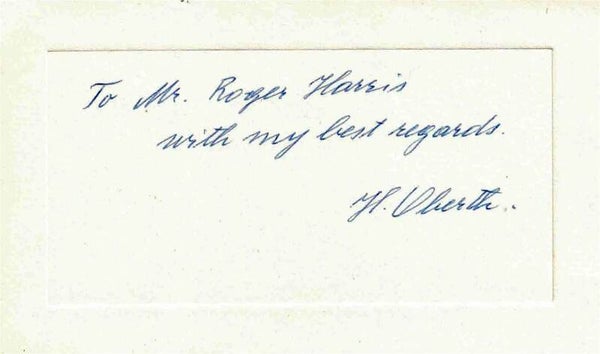 To Mr. Roger Harris
with my best regards.
H. Oberth.